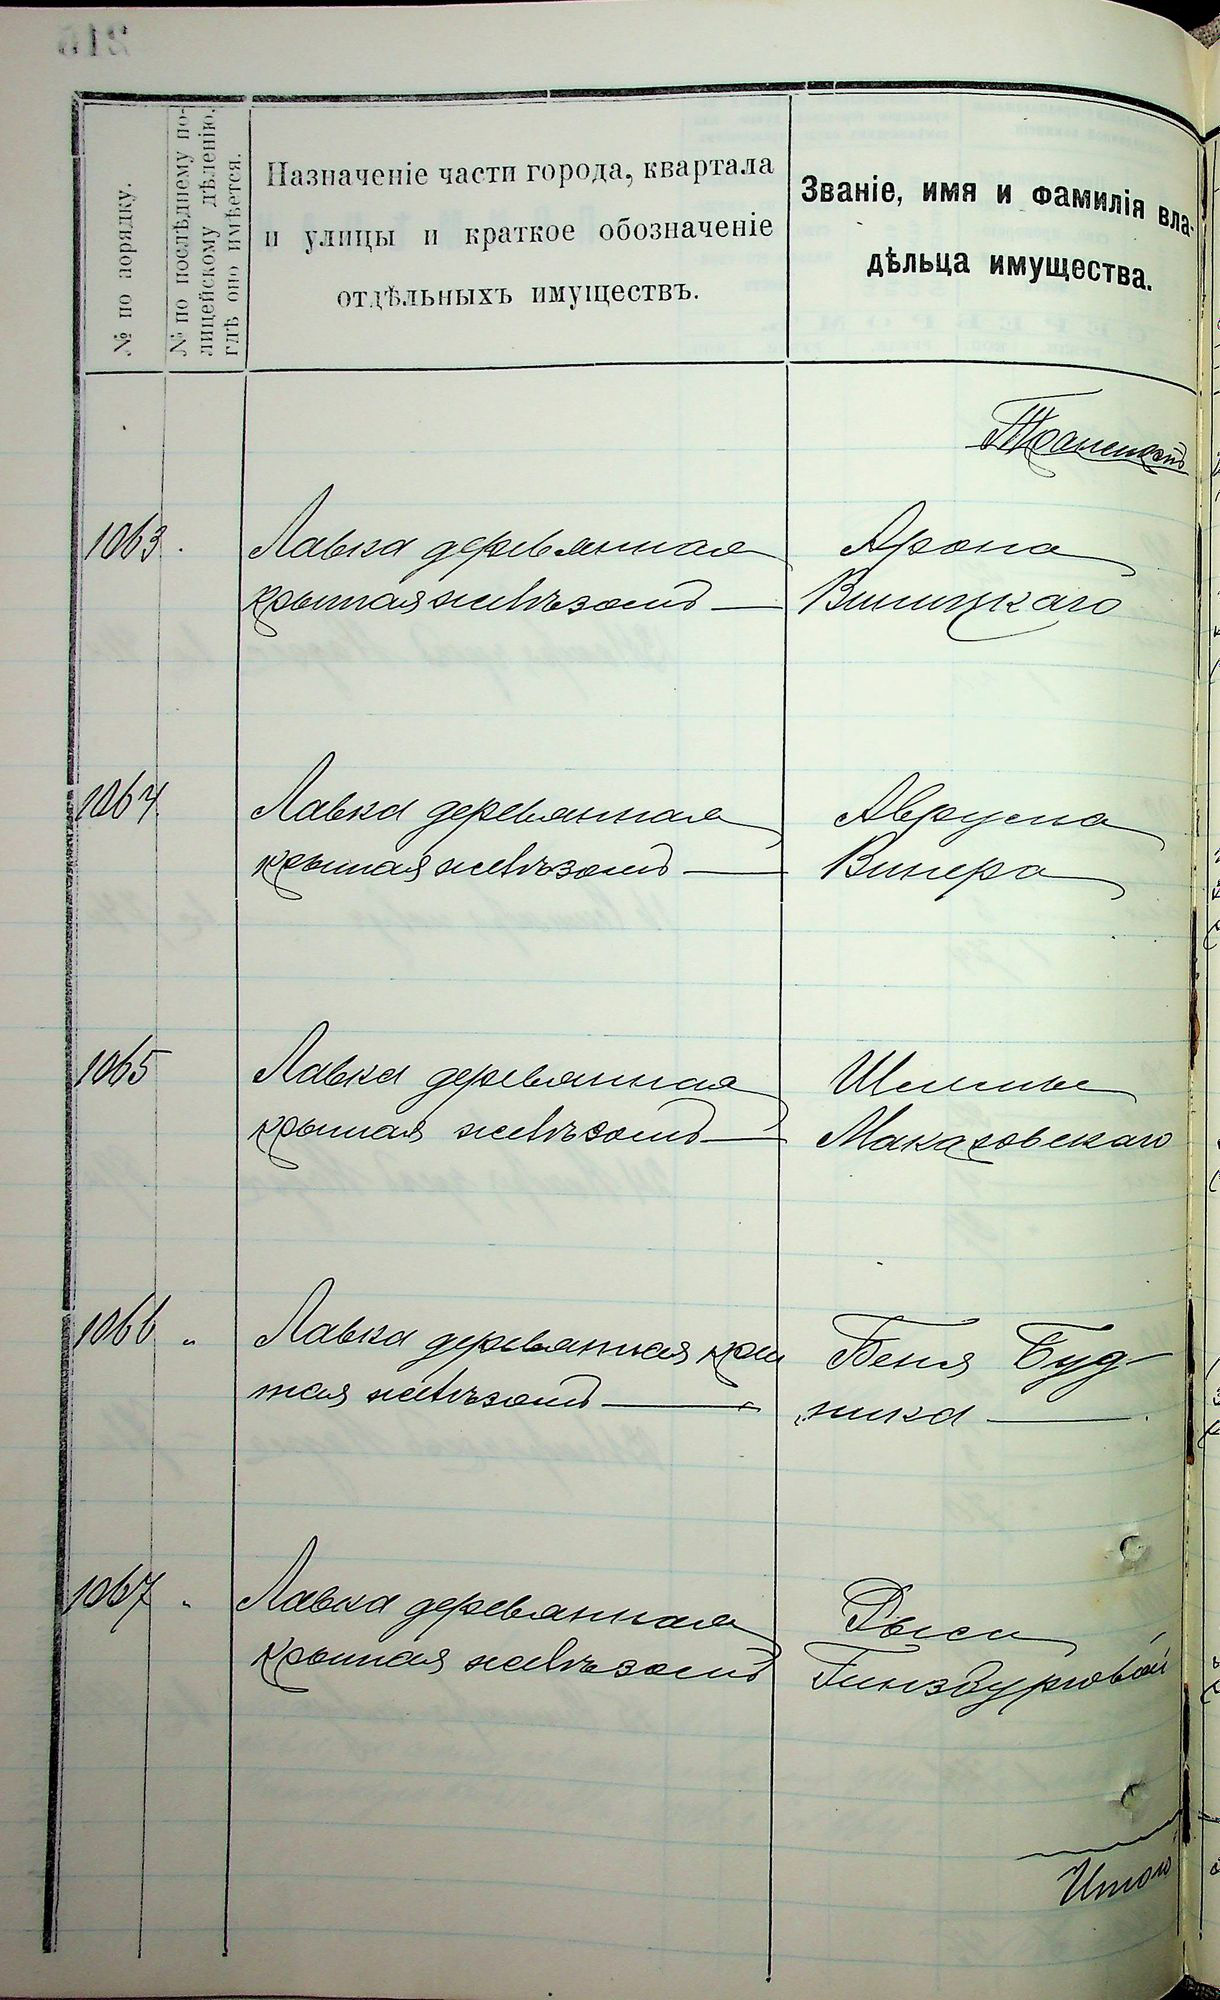 № по порядку.
№ по послѣднему по-
лицейскому дѣленію,
гдѣ оно имѣется.
Назначеніе части города, квартала
и улицы и краткое обозначеніе
отдѣльныхъ имуществъ.
Званіе, имя и фамилія вла-
дѣльца имущества.
1063. Лавка деревянная Арона
крытая желѣзомъ — Виницкаго
1064. Лавка деревянная Аврума
крытая желѣзомъ — Винера
1065 Лавка деревянная
крытая желѣзомъ — Макаховскаго
1066 " Лавка деревянная кры Беня Буд-
тая желѣзомъ — ника —
1067 " Лавка деревянная Рыси
крытая желѣзомъ Гинзбурговой
Итого